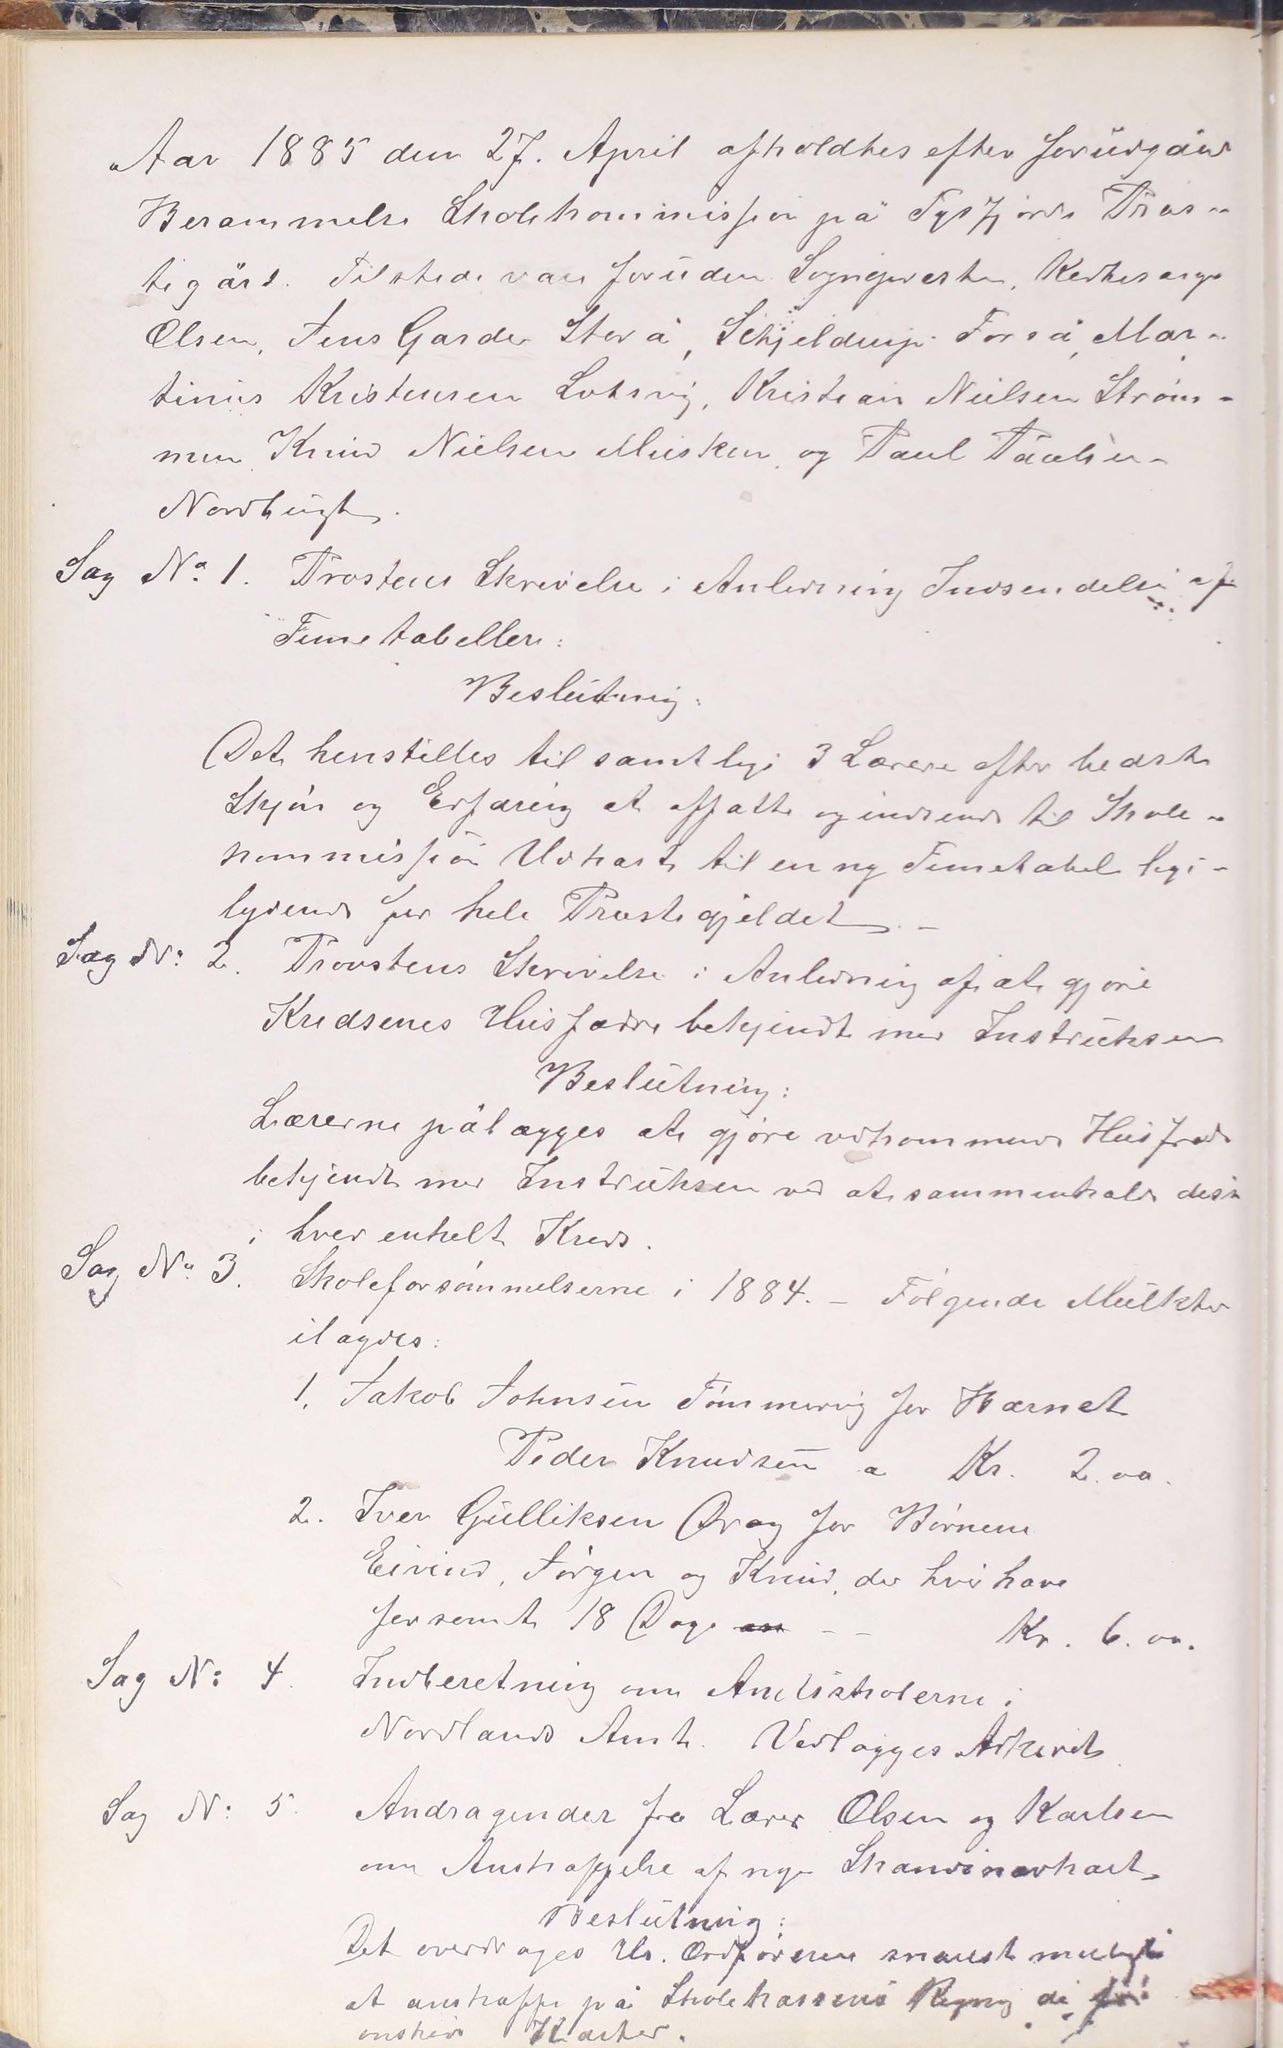 Aar 1885 den 27. April afholdtes efter forudgåend
Berammelse Skolekommission på Tysfjords Præs-
tegård. Tilstede vare foruden Sognepresten, Kirkesanger
Olsen, Jens Garder Storå, Schjelderup Forså, Mar-
tinus Kristensen Lotsvig, Kristian Nielsen Strøm-
men Knud Nielsen Musken og Paul Paulsen
Nordbugt.
Sag No. 1. Provstens Skrivelse i Anledning Indsendelse af
Timetabeller:
Beslutning:
Det henstilles til samtlige 3 Lærere efter bedste
Skjøn og Erfaring at affatte og indsende til Skole-
kommission Udkast til en ny Timetabel lige-
lydende for hele Præstegjeldet. -
Sag No: 2. Provstens Skrivelse i Anledning af at gjøre
Kredsenes Husfædre bekjendt med Instruksen
Beslutning:
Lærerne pålægges at gjøre vedkommende Husfædre
bekjendt med Instruksen ved at sammenkalde disse
i hver enkelt Kreds.
Sag No. 3. Skoleforsømmelserne i 1884. - Følgende Mulkter
ilagdes:
1. Jakob Johnsen Tømmervig for Barnet
Peder Knudsen a Kr. 2.00.
2. Iver Gulliksen Drag for Børnene
Eivind, Jørgen og Knud, der hver have
forsømt 18 Dage - - Kr. 6.00.
Sag No: 4. Indberetning om Amtsskolerne i
Nordlands Amt. Vedlægges Arkivet.
Sag No: 5. Andragender fra Lærer Olsen og Karlsen
om Anskaffelse af nye Skandinavkart.
Beslutning:
Det overdrages Hr. Ordføreren snarest muligt
at anskaffe på Skolekassens Regning de
ønskede Karter.